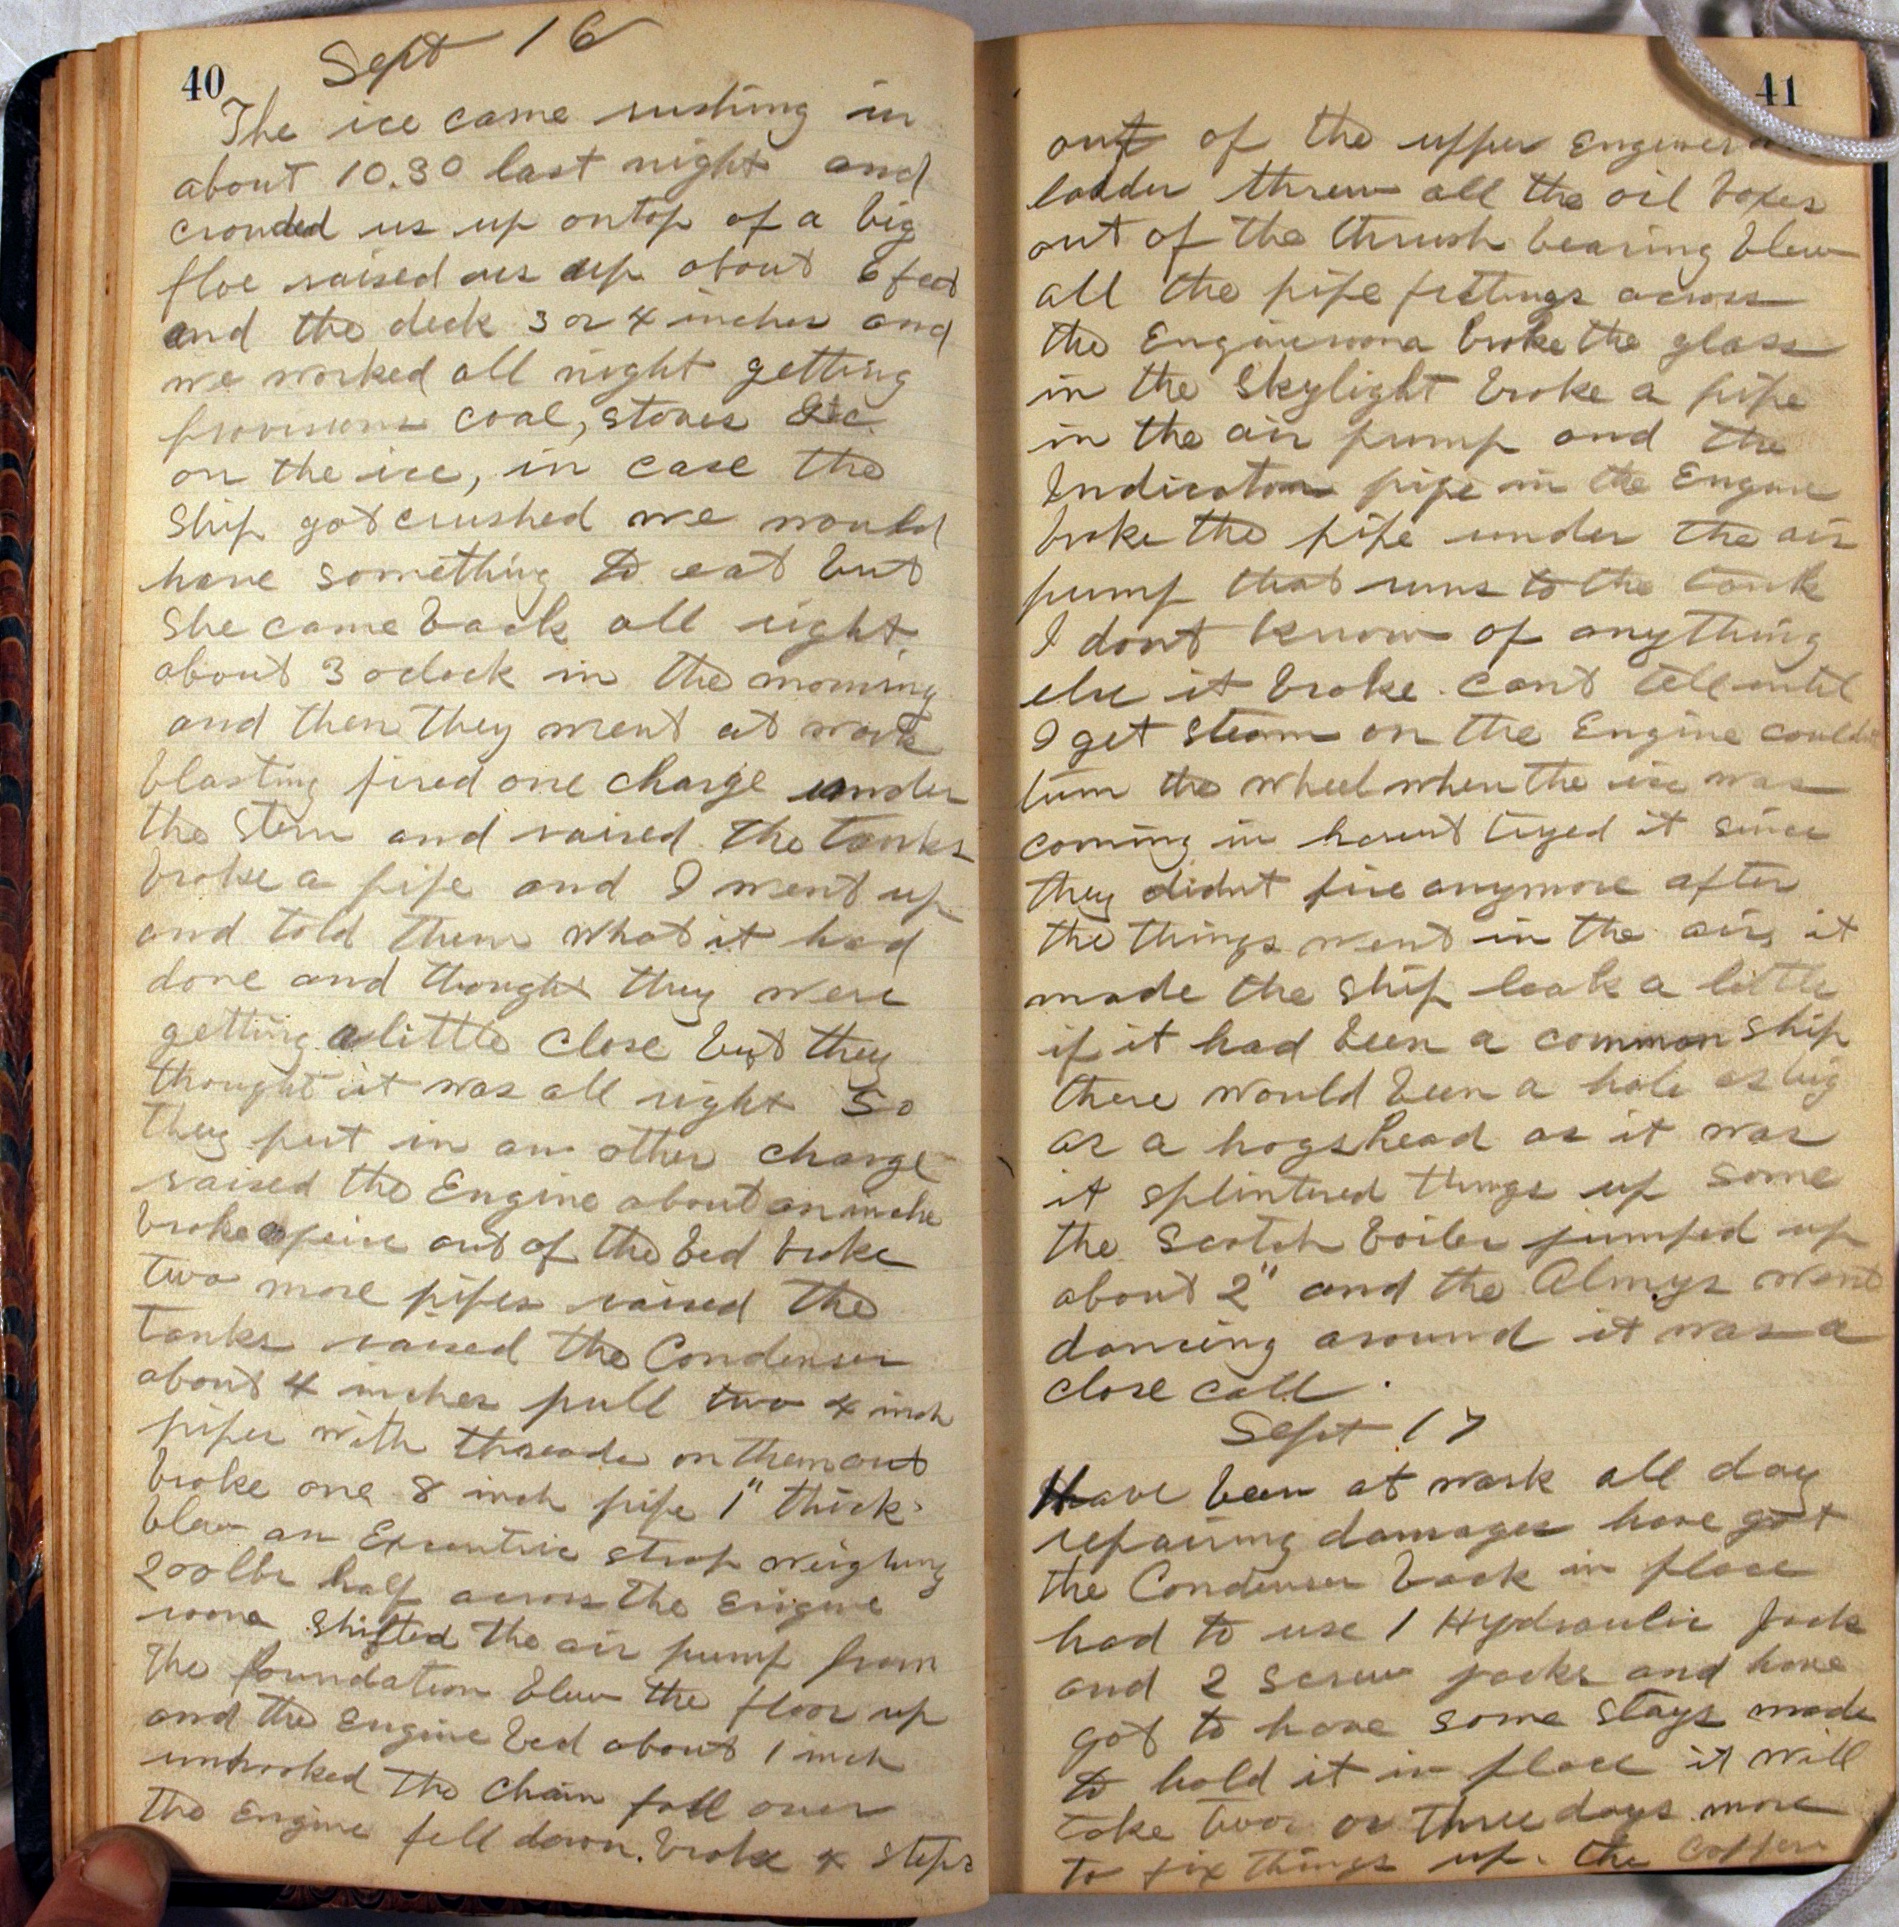 40
Sept 16
The ice came rushing in
about 10.30 last night and
crowded us up ontop of a big
floe raised us up about 6 feet
and the deck 3 or 4 inches and
we worked all night getting
provisions coal, stoves &c
on the ice, in case the
ship got crushed we would
have something to eat but
she came back all right
about 3 oclock in the morning
and then they went at work
blasting fired one charge under
the stern and raised the tanks
broke a pipe and I went up
and told them what it had
done and thought they were
getting a little close but they
thought it was all right so
they put in an other charge
raised the Engine about an inche
broke a peice out of the bed broke
two more pipes raised the
tanks raised the Condenser
about 4 inches pull two 4 inch
pipes with threads on them out
broke one 8 inch pipe 1" thick
blew an Excentric strap weighing
200 lbs half across the Engine
room shifted the air pump from
the foundation blew the floor up
and the Engine bed about 1 inch
unhooked the chain fall over
the Engine fell down. broke 4 steps
41
out of the upper Engineroom
ladder threw all the oil boxes
out of the thrush bearing blew
all the pipe fittings across
the Engineroom broke the glass
in the skylight broke a pipe
in the air pump and the
Indicator pipe in the Engine
broke the pipe under the air
pump that runs to the tank
I dont know of anything
else it broke. cant tell until
I get steam on the Engine couldnt
turn the wheel when the ice was
coming in havent tryed it since
they didnt fire anymore after
the things went in the air, it
made the ship leak a little
if it had been a common ship
there would been a hole as big
as a hogshead as it was
it splintered things up some
the Scotch boiler jumped up
about 2" and the Almys went
dancing around it was a
close call.
Sept 17
Have been at work all day
repairing damages have got
the Condenser back in place
had to use 1 Hydraulic Jack
and 2 screw jacks and have
got to have some stays made
to hold it in place it will
take two or three days more
to fix things up. the Copper